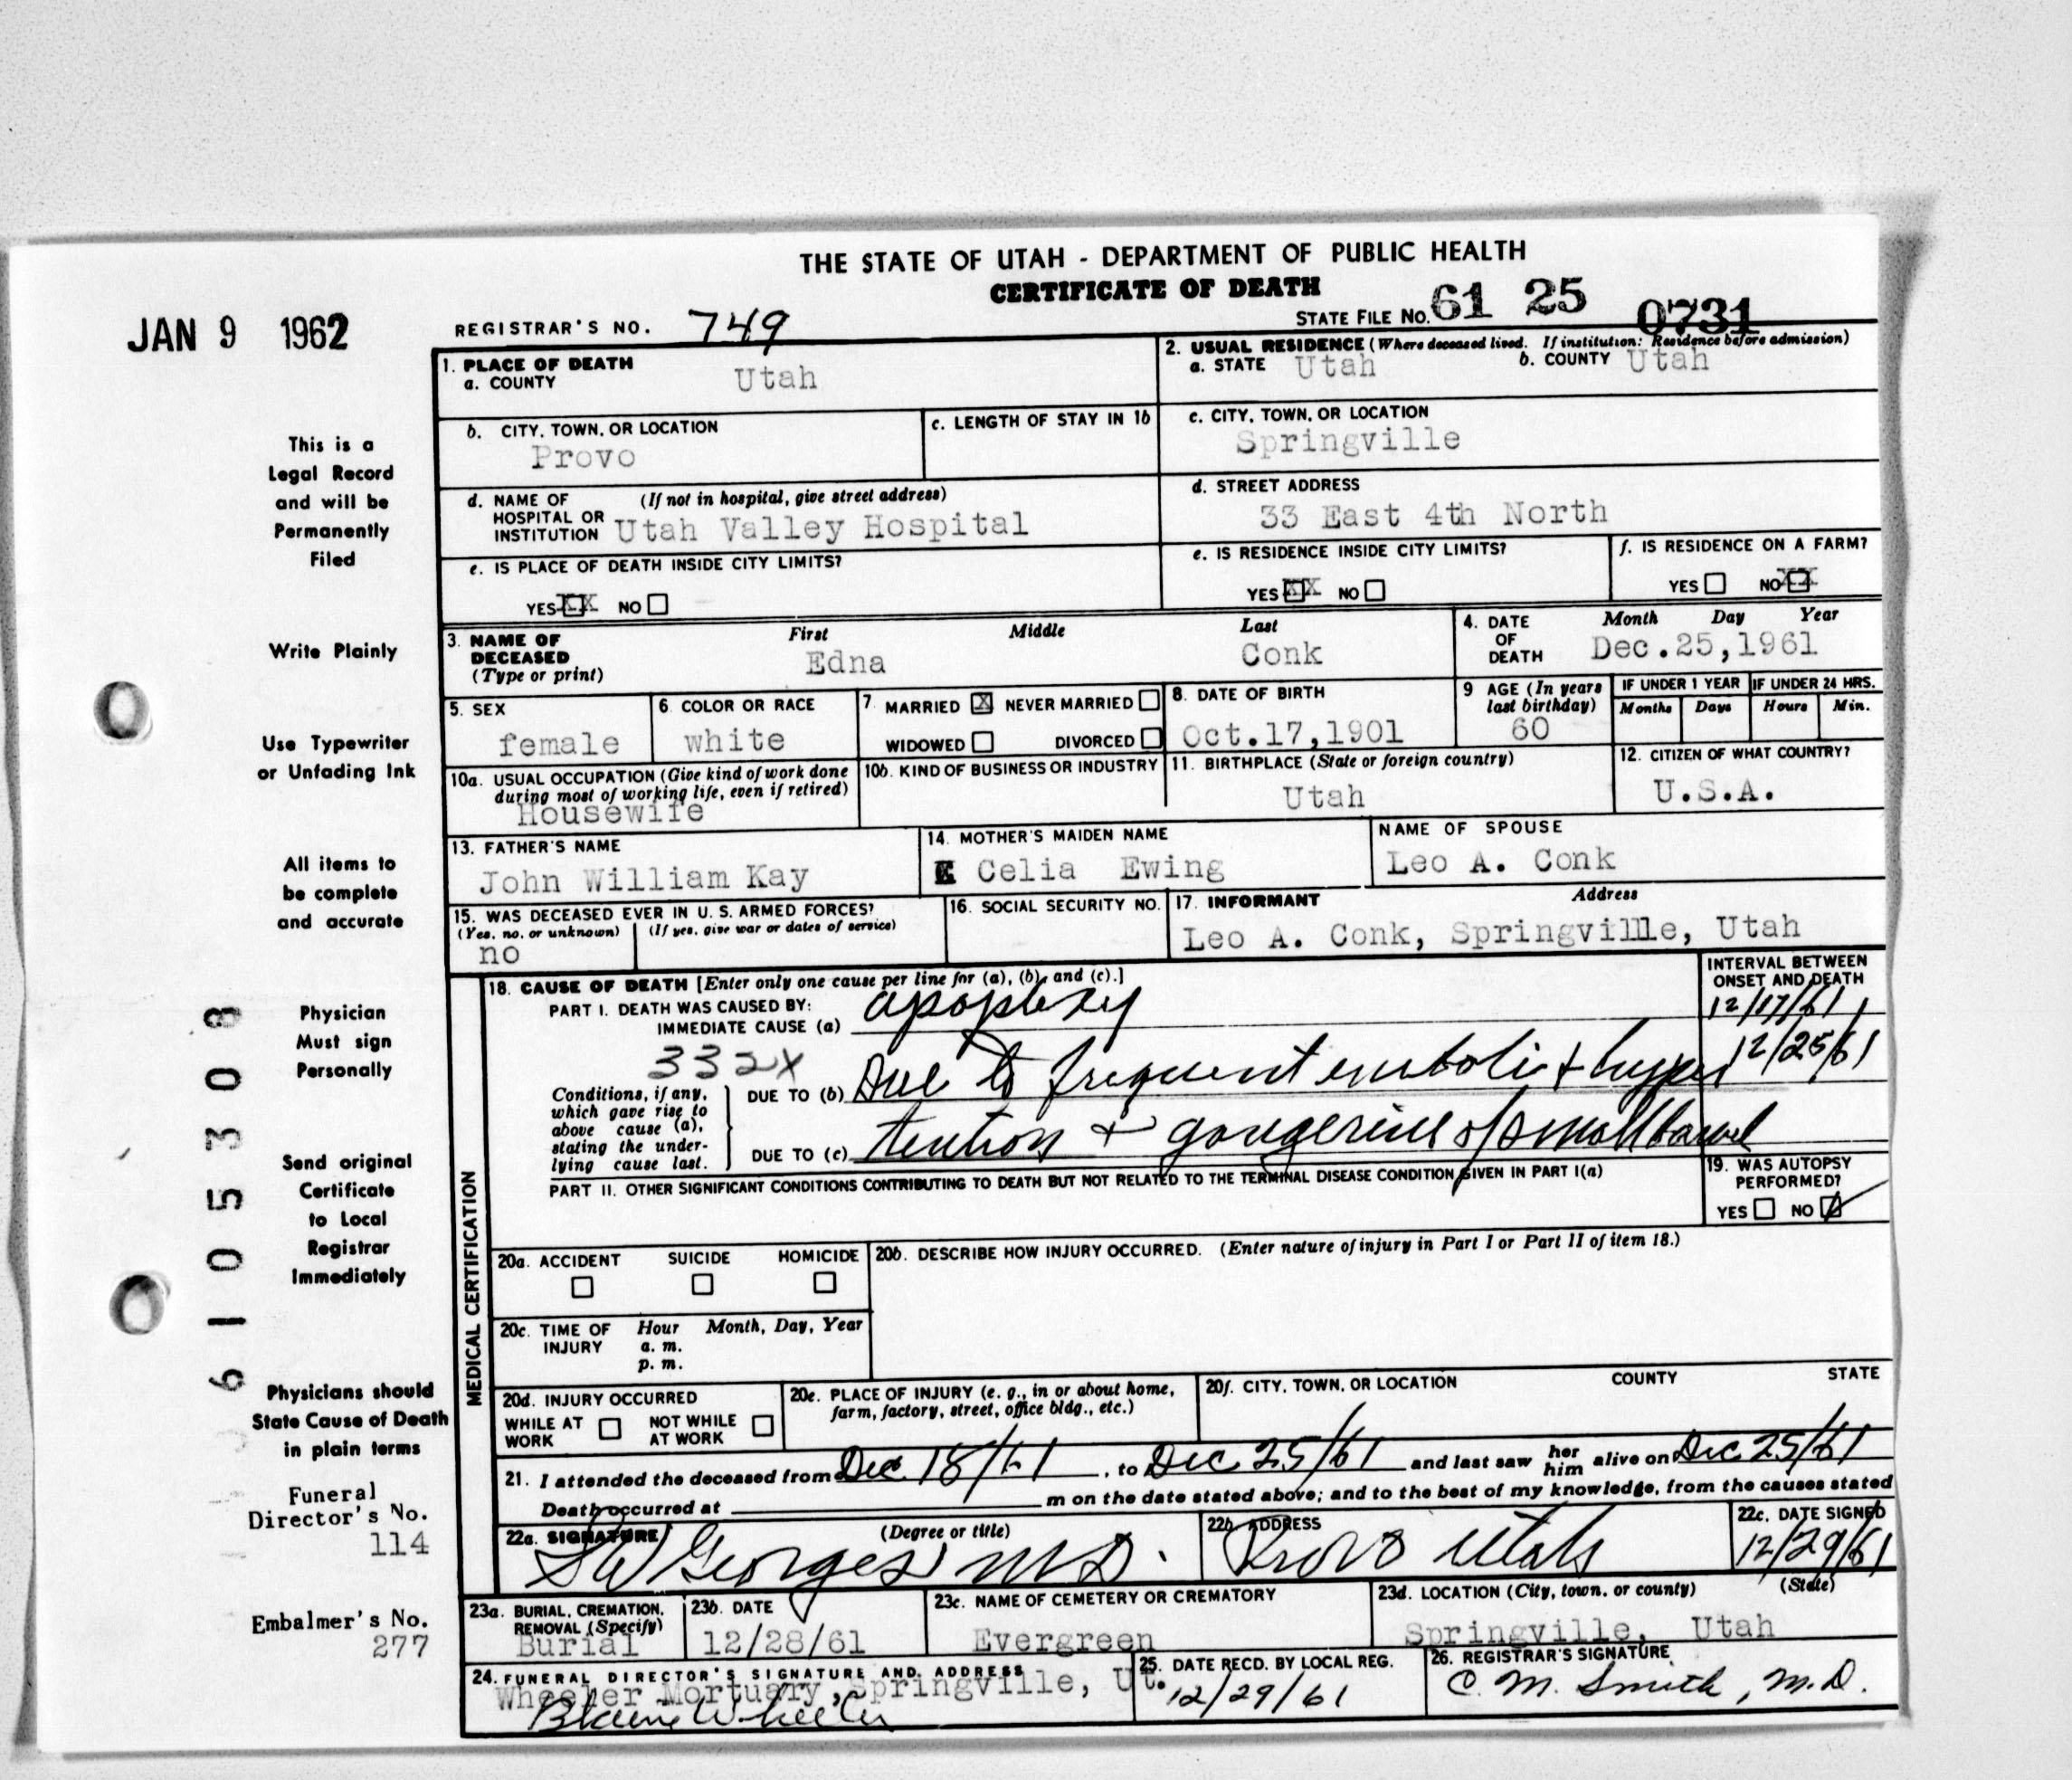 THE STATE OF UTAH - DEPARTMENT OF PUBLIC HEALTH
CERTIFICATE OF DEATH
JAN 9 1962
REGISTRAR'S NO. 749
STATE FILE NO. 61 25 0731
1. PLACE OF DEATH
a. COUNTY Utah
2. USUAL RESIDENCE (Where deceased lived. If institution: Residence before admission)
a. STATE Utah b. COUNTY Utah
b. CITY, TOWN, OR LOCATION
Provo
c. LENGTH OF STAY IN 1b
c. CITY, TOWN, OR LOCATION
Springville
d. NAME OF (If not in hospital, give street address)
HOSPITAL OR
INSTITUTION Utah Valley Hospital
d. STREET ADDRESS
33 East 4th North
e. IS PLACE OF DEATH INSIDE CITY LIMITS?
YES XX NO
e. IS RESIDENCE INSIDE CITY LIMITS?
YES XX NO
f. IS RESIDENCE ON A FARM?
YES NO XX
3. NAME OF DECEASED
(Type or print)
First Middle Last
Edna Conk
4. DATE OF DEATH
Month Day Year
Dec.25,1961
5. SEX
female
6. COLOR OR RACE
white
7. MARRIED X NEVER MARRIED
WIDOWED DIVORCED
8. DATE OF BIRTH
Oct.17,1901
9 AGE (In years
last birthday)
60
IF UNDER 1 YEAR IF UNDER 24 HRS.
Months Days Hours Min.
10a. USUAL OCCUPATION (Give kind of work done
during most of working life, even if retired)
Housewife
10b. KIND OF BUSINESS OR INDUSTRY
11. BIRTHPLACE (State or foreign country)
Utah
12. CITIZEN OF WHAT COUNTRY?
U.S.A.
13. FATHER'S NAME
John William Kay
14. MOTHER'S MAIDEN NAME
Celia Ewing
NAME OF SPOUSE
Leo A. Conk
15. WAS DECEASED EVER IN U. S. ARMED FORCES?
(Yes, no, or unknown) (If yes, give war or dates of service)
no
16. SOCIAL SECURITY NO.
17. INFORMANT Address
Leo A. Conk, Springville, Utah
MEDICAL CERTIFICATION
18. CAUSE OF DEATH [Enter only one cause per line for (a), (b), and (c).]
PART I. DEATH WAS CAUSED BY:
IMMEDIATE CAUSE (a) apoplexy
INTERVAL BETWEEN
ONSET AND DEATH
12/17/61
12/25/61
332X
Conditions, if any,
which gave rise to
above cause (a),
stating the under-
lying cause last.
DUE TO (b) Due to frequent emboli + hyper
DUE TO (c) tention + gangerine of small bowel
PART II. OTHER SIGNIFICANT CONDITIONS CONTRIBUTING TO DEATH BUT NOT RELATED TO THE TERMINAL DISEASE CONDITION GIVEN IN PART I(a)
19. WAS AUTOPSY
PERFORMED?
YES NO
20a. ACCIDENT SUICIDE HOMICIDE
20b. DESCRIBE HOW INJURY OCCURRED. (Enter nature of injury in Part I or Part II of item 18.)
20c. TIME OF INJURY
Hour Month, Day, Year
a. m.
p. m.
20d. INJURY OCCURRED
WHILE AT WORK NOT WHILE AT WORK
20e. PLACE OF INJURY (e. g., in or about home,
farm, factory, street, office bldg., etc.)
20f. CITY, TOWN, OR LOCATION COUNTY STATE
21. I attended the deceased from Dec. 18/61, to Dec 25/61 and last saw her him alive on Dec 25/61
Death occurred at m on the date stated above; and to the best of my knowledge, from the causes stated
22a. SIGNATURE (Degree or title)
Georges M D.
22b. ADDRESS
Provo Utah
22c. DATE SIGNED
12/29/61
23a. BURIAL, CREMATION,
REMOVAL (Specify)
Burial
23b. DATE
12/28/61
23c. NAME OF CEMETERY OR CREMATORY
Evergreen
23d. LOCATION (City, town, or county) (State)
Springville, Utah
24. FUNERAL DIRECTOR'S SIGNATURE AND ADDRESS
Wheeler Mortuary, Springville, Ut.
Blaine Wheeler
25. DATE RECD. BY LOCAL REG.
12/29/61
26. REGISTRAR'S SIGNATURE
C. M. Smith, M.D.
This is a
Legal Record
and will be
Permanently
Filed
Write Plainly
Use Typewriter
or Unfading Ink
All items to
be complete
and accurate
Physician
Must sign
Personally
Send original
Certificate
to Local
Registrar
Immediately
Physicians should
State Cause of Death
in plain terms
Funeral
Director's No.
114
Embalmer's No.
277
6105308